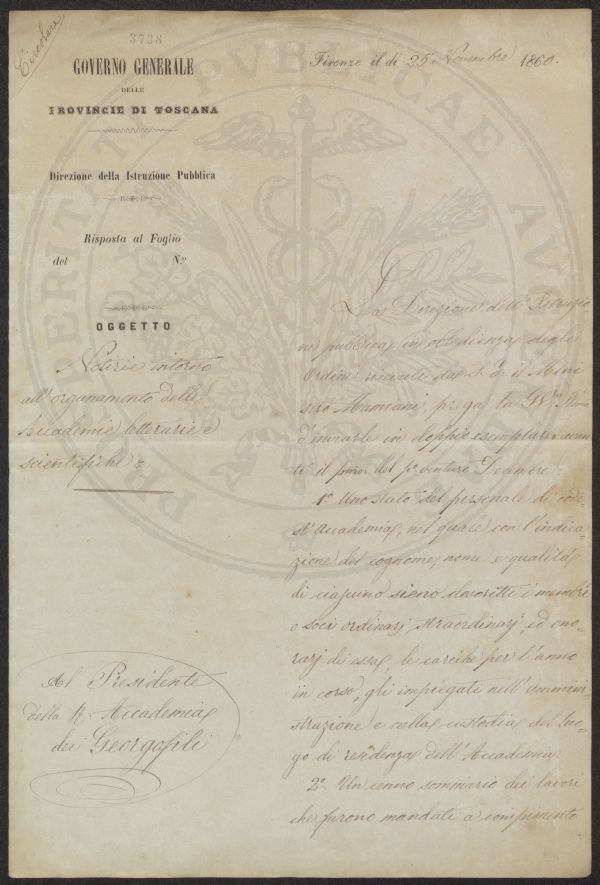 Circolare
3738
GOVERNO GENERALE
DELLE
PROVINCIE DI TOSCANA
Direzione della Istruzione Pubblica
Risposta al Foglio
del N.º
OGGETTO
Notizie intorno
all'organamento delle
Accademie letterarie e
scientifiche
Al Presidente
della R. Accademia
dei Georgofili
Firenze il dì 25 Novembre 1860.
La Direzione dell'Istruzio
ne pubblica in obbedienza degli
Ordini ricevuti da S. E. il Mini
stro Mamiani, prega la
d'inviarle in doppio esemplare avan
ti il del pº venturo Decembre
1º Uno stato del personale di code
st'Accademia, nel quale con l'indica
zione del cognome, nome e qualità
di ciascuno sieno descritti i membri
o soci ordinarj, straordinarj, ed ono-
rarj di essa, le cariche per l'anno
in corso, gli impiegati nell'ammini
strazione e nella custodia del luo-
go di residenza dell'Accademia
2º Un cenno sommario dei lavori
che furono mandati a compimento
PUBLICAE